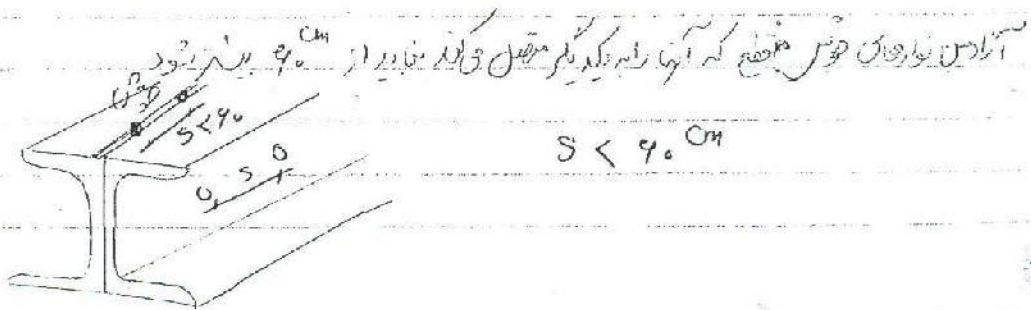 آزاد بین نوارهای جوش منقطع که آنها را به یکدیگر متصل می‌کند نباید از ۶۰ cm بیشتر شود
جوش
S < ۶۰
S < ۶۰ cm
S